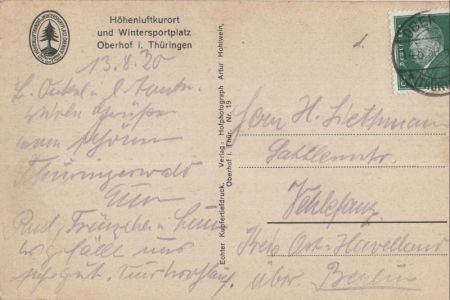 Höhenluftkurort
und Wintersportplatz
Oberhof i. Thüringen
13.8.30
L. Onkel u. l. Tante.
viele Grüße
vom schönen
Thüringerwald
Paul, Fränzchen u.
gefällt uns
sehr gut.
Echter Kupfertiefdruck. Verlag: Hofphotograph Artur Hohlwein,
Oberhof i. Thür. Nr. 19
Herrn H. Liethmann
Sattlermstr.
Vehlefanz
Kreis Ost-Havelland
über Berlin